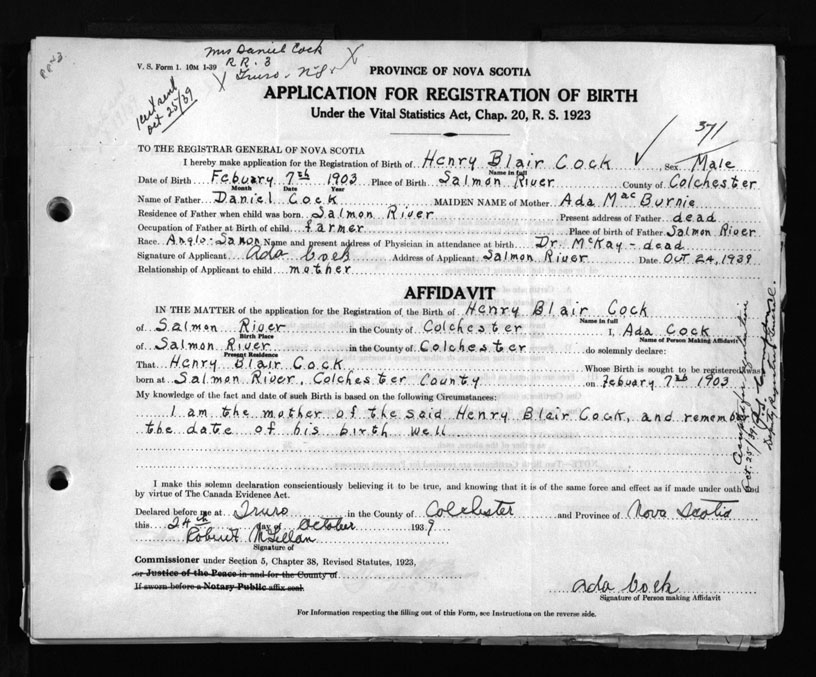 Mrs Daniel Cock
R R. 3
Truro - N.S.
V. S. Form 1. 10M 1-39
Oct 25/39
PROVINCE OF NOVA SCOTIA
APPLICATION FOR REGISTRATION OF BIRTH
Under the Vital Statistics Act, Chap. 20, R. S. 1923
371
TO THE REGISTRAR GENERAL OF NOVA SCOTIA
I hereby make application for the Registration of Birth of Henry Blair Cock, Sex Male
Name in full
Date of Birth Febuary 7th 1903 Place of Birth Salmon River County of Colchester
Month Date Year
Name of Father Daniel Cock MAIDEN NAME of Mother Ada MacBurnie
Residence of Father when child was born Salmon River Present address of Father dead
Occupation of Father at Birth of child farmer Place of birth of Father Salmon River
Race Anglo-Saxon Name and present address of Physician in attendance at birth Dr. McKay - dead
Signature of Applicant Ada Cock Address of Applicant Salmon River Date Oct 24, 1939
Relationship of Applicant to child mother
AFFIDAVIT
IN THE MATTER of the application for the Registration of the Birth of Henry Blair Cock
Name in full
of Salmon River in the County of Colchester I, Ada Cock
Birth Place Name of Person Making Affidavit
of Salmon River in the County of Colchester do solemnly declare:
Present Residence
That Henry Blair Cock Whose Birth is sought to be registered was
born at Salmon River, Colchester County on Febuary 7th 1903
My knowledge of the fact and date of such Birth is based on the following Circumstances:
I am the mother of the said Henry Blair Cock, and remember
the date of his birth well
Oct. 25/39
Deputy Registrar General.
I make this solemn declaration conscientiously believing it to be true, and knowing that it is of the same force and effect as if made under oath and
by virtue of The Canada Evidence Act.
Declared before me at Truro in the County of Colchester and Province of Nova Scotia
this 24th day of October 1939
Robert McLellan
Signature of
Commissioner under Section 5, Chapter 38, Revised Statutes, 1923,
or Justice of the Peace in and for the County of
If sworn before a Notary Public affix seal.
Ada Cock
Signature of Person making Affidavit
For Information respecting the filling out of this Form, see Instructions on the reverse side.